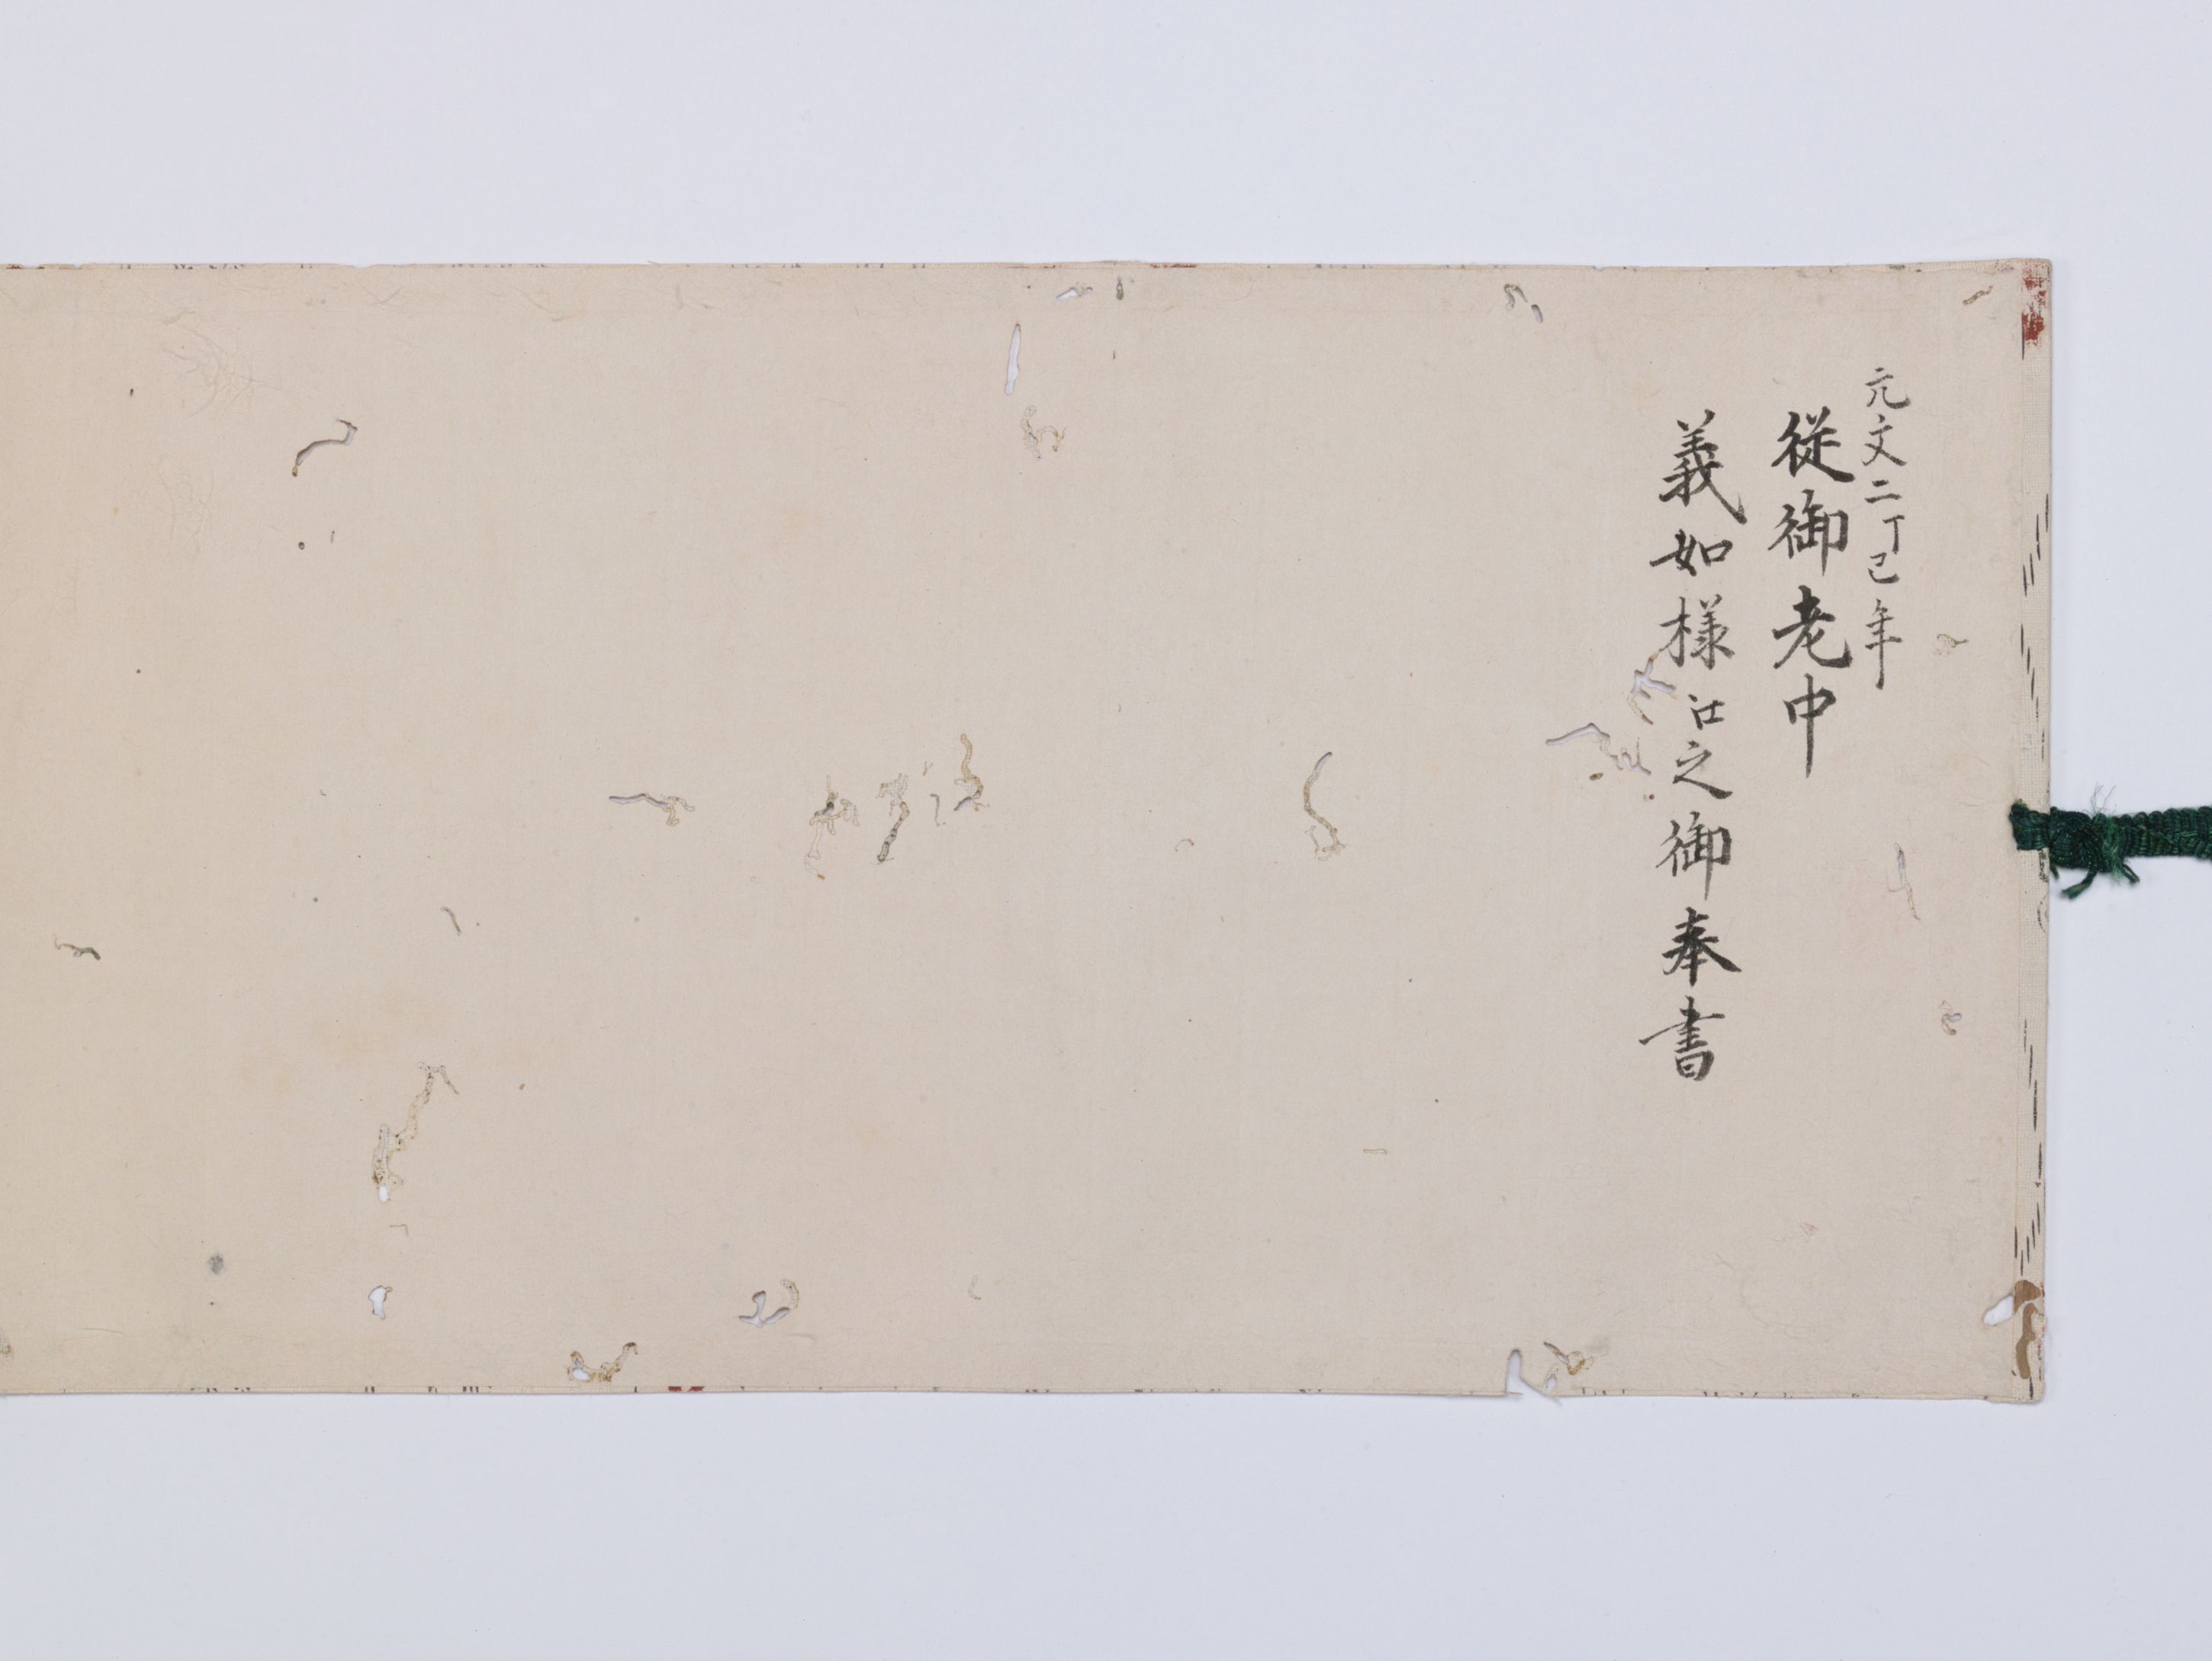 元文二丁巳年
従御老中
義如様江之御奉書